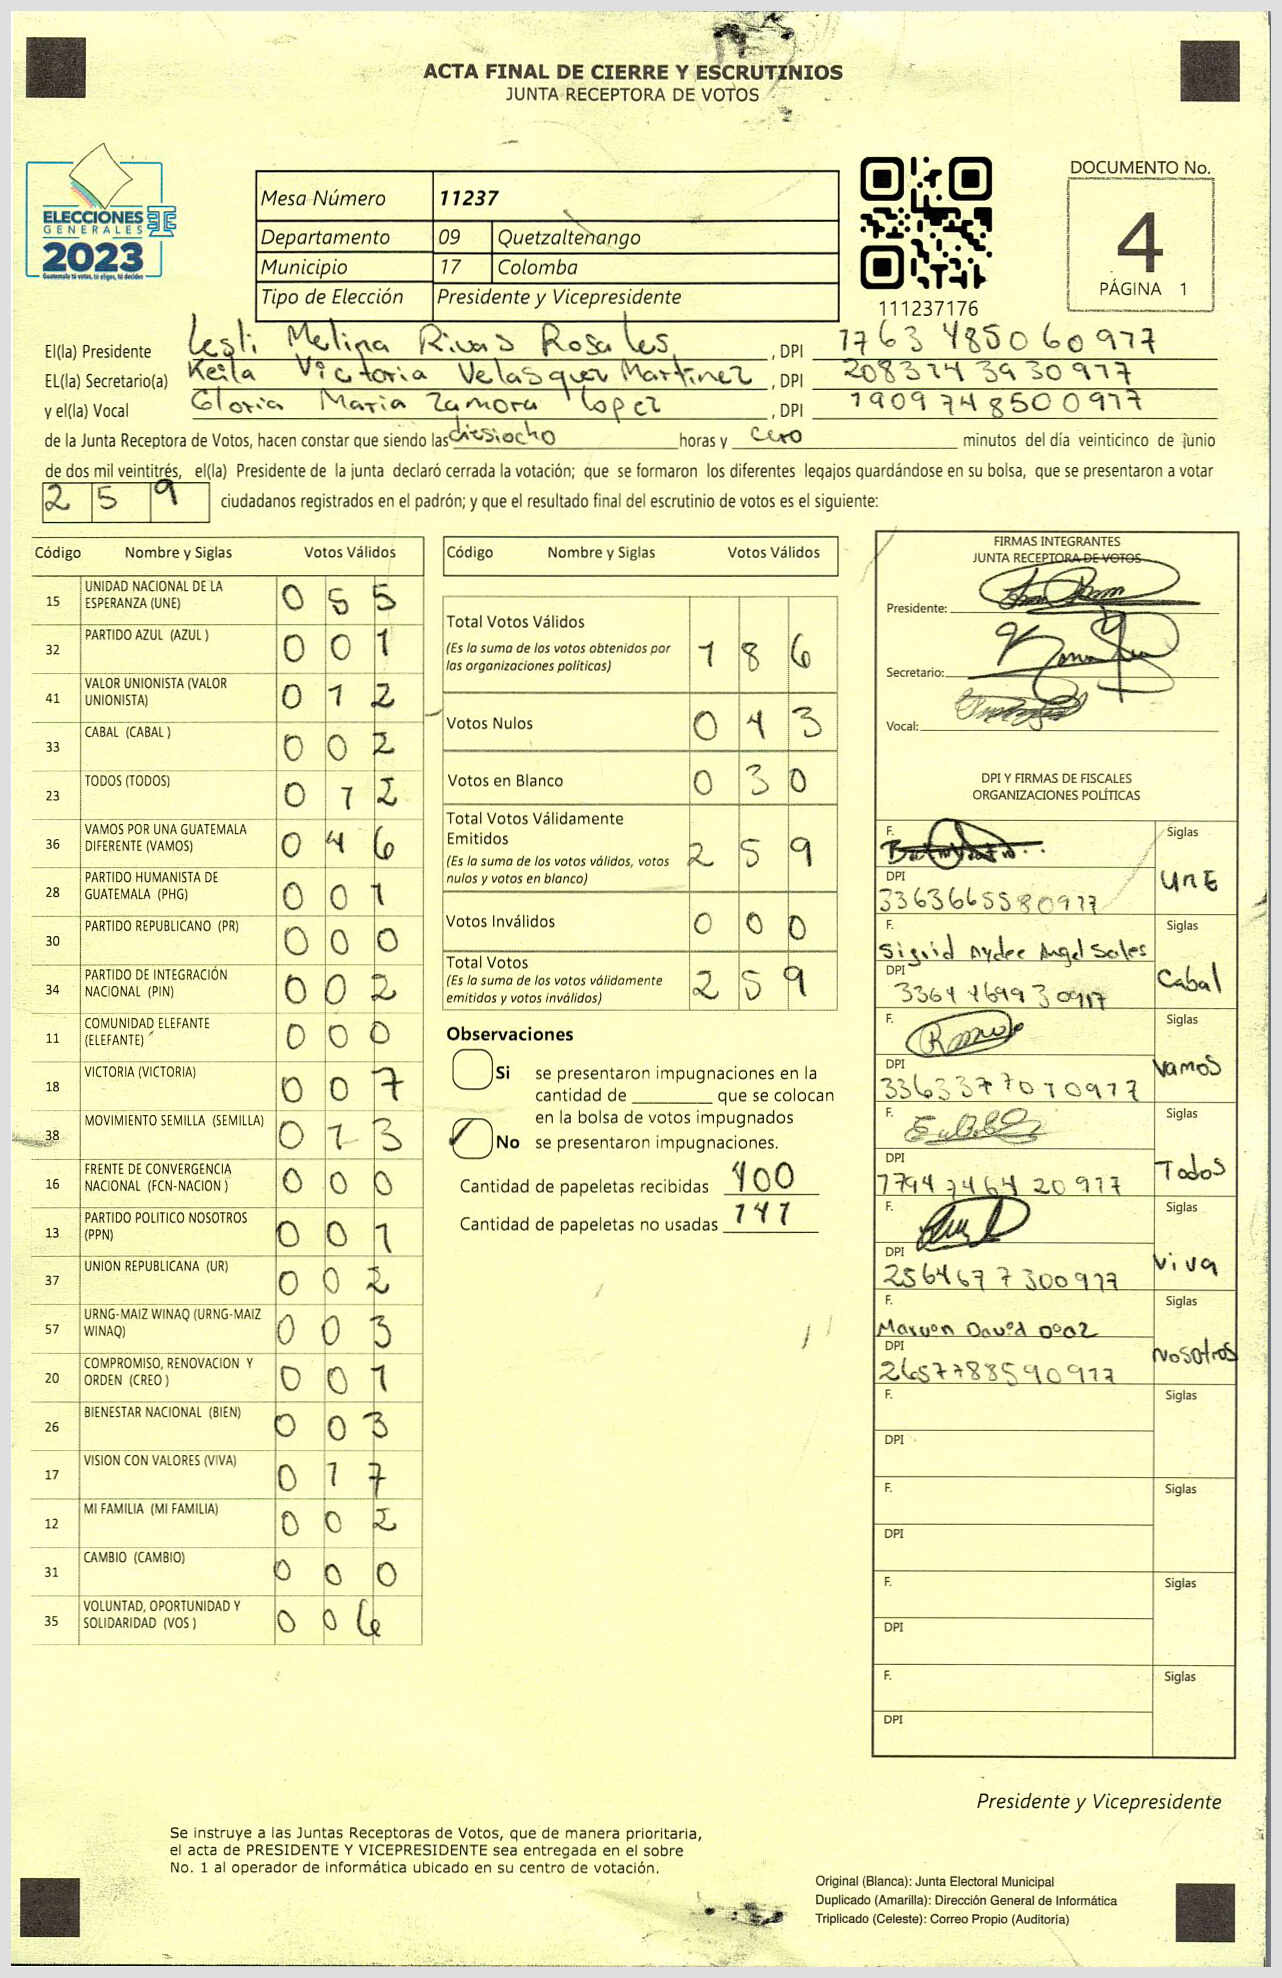 ACTA FINAL DE CIERRE Y ESCRUTINIOS
JUNTA RECEPTORA DE VOTOS
ELECCIONES
GENERALES
2023
Mesa Número 11237
Departamento 09 Quetzaltenango
Municipio 17 Colomba
Tipo de Elección Presidente y Vicepresidente
111237176
DOCUMENTO No.
4
PÁGINA 1
El(la) Presidente Lesli Melina Rivas Rosales, DPI 1763 48506 0917
EL(la) Secretario(a) Keila Victoria Velasquez Martinez, DPI 2083743930917
y el(la) Vocal Gloria Maria Zamora Lopez, DPI 1909748500917
de la Junta Receptora de Votos, hacen constar que siendo las diesiocho horas y cero minutos del día veinticinco de junio
de dos mil veintitrés, el(la) Presidente de la junta declaró cerrada la votación; que se formaron los diferentes legajos guardándose en su bolsa, que se presentaron a votar
259 ciudadanos registrados en el padrón; y que el resultado final del escrutinio de votos es el siguiente:
Código Nombre y Siglas Votos Válidos
15 UNIDAD NACIONAL DE LA ESPERANZA (UNE) 055
32 PARTIDO AZUL (AZUL ) 001
41 VALOR UNIONISTA (VALOR UNIONISTA) 012
33 CABAL (CABAL ) 002
23 TODOS (TODOS) 012
36 VAMOS POR UNA GUATEMALA DIFERENTE (VAMOS) 046
28 PARTIDO HUMANISTA DE GUATEMALA (PHG) 001
30 PARTIDO REPUBLICANO (PR) 000
34 PARTIDO DE INTEGRACIÓN NACIONAL (PIN) 002
11 COMUNIDAD ELEFANTE (ELEFANTE) 000
18 VICTORIA (VICTORIA) 007
38 MOVIMIENTO SEMILLA (SEMILLA) 013
16 FRENTE DE CONVERGENCIA NACIONAL (FCN-NACION ) 000
13 PARTIDO POLITICO NOSOTROS (PPN) 001
37 UNION REPUBLICANA (UR) 002
57 URNG-MAIZ WINAQ (URNG-MAIZ WINAQ) 003
20 COMPROMISO, RENOVACION Y ORDEN (CREO ) 001
26 BIENESTAR NACIONAL (BIEN) 003
17 VISION CON VALORES (VIVA) 017
12 MI FAMILIA (MI FAMILIA) 002
31 CAMBIO (CAMBIO) 000
35 VOLUNTAD, OPORTUNIDAD Y SOLIDARIDAD (VOS ) 006
Código Nombre y Siglas Votos Válidos
Total Votos Válidos 186
(Es la suma de los votos obtenidos por
las organizaciones políticas)
Votos Nulos 043
Votos en Blanco 030
Total Votos Válidamente
Emitidos 259
(Es la suma de los votos válidos, votos
nulos y votos en blanco)
Votos Inválidos 000
Total Votos 259
(Es la suma de los votos válidamente
emitidos y votos inválidos)
Observaciones
Si se presentaron impugnaciones en la
cantidad de ________ que se colocan
en la bolsa de votos impugnados
No se presentaron impugnaciones.
Cantidad de papeletas recibidas 400
Cantidad de papeletas no usadas 141
FIRMAS INTEGRANTES
JUNTA RECEPTORA DE VOTOS
Presidente:
Secretario:
Vocal:
DPI Y FIRMAS DE FISCALES
ORGANIZACIONES POLÍTICAS
F. Siglas
UNE
DPI 3363665580917
F. Sigrid Aydee Angel Sales Siglas
Cabal
DPI 3364469930917
F. Siglas
Vamos
DPI 3363377010917
F. Siglas
Todos
DPI 1794746420917
F. Siglas
Viva
DPI 2564677300917
F. David Siglas
Nosotros
DPI 2657788590917
F. Siglas
DPI
F. Siglas
DPI
F. Siglas
DPI
F. Siglas
DPI
Presidente y Vicepresidente
Se instruye a las Juntas Receptoras de Votos, que de manera prioritaria,
el acta de PRESIDENTE Y VICEPRESIDENTE sea entregada en el sobre
No. 1 al operador de informática ubicado en su centro de votación.
Original (Blanca): Junta Electoral Municipal
Duplicado (Amarilla): Dirección General de Informática
Triplicado (Celeste): Correo Propio (Auditoría)